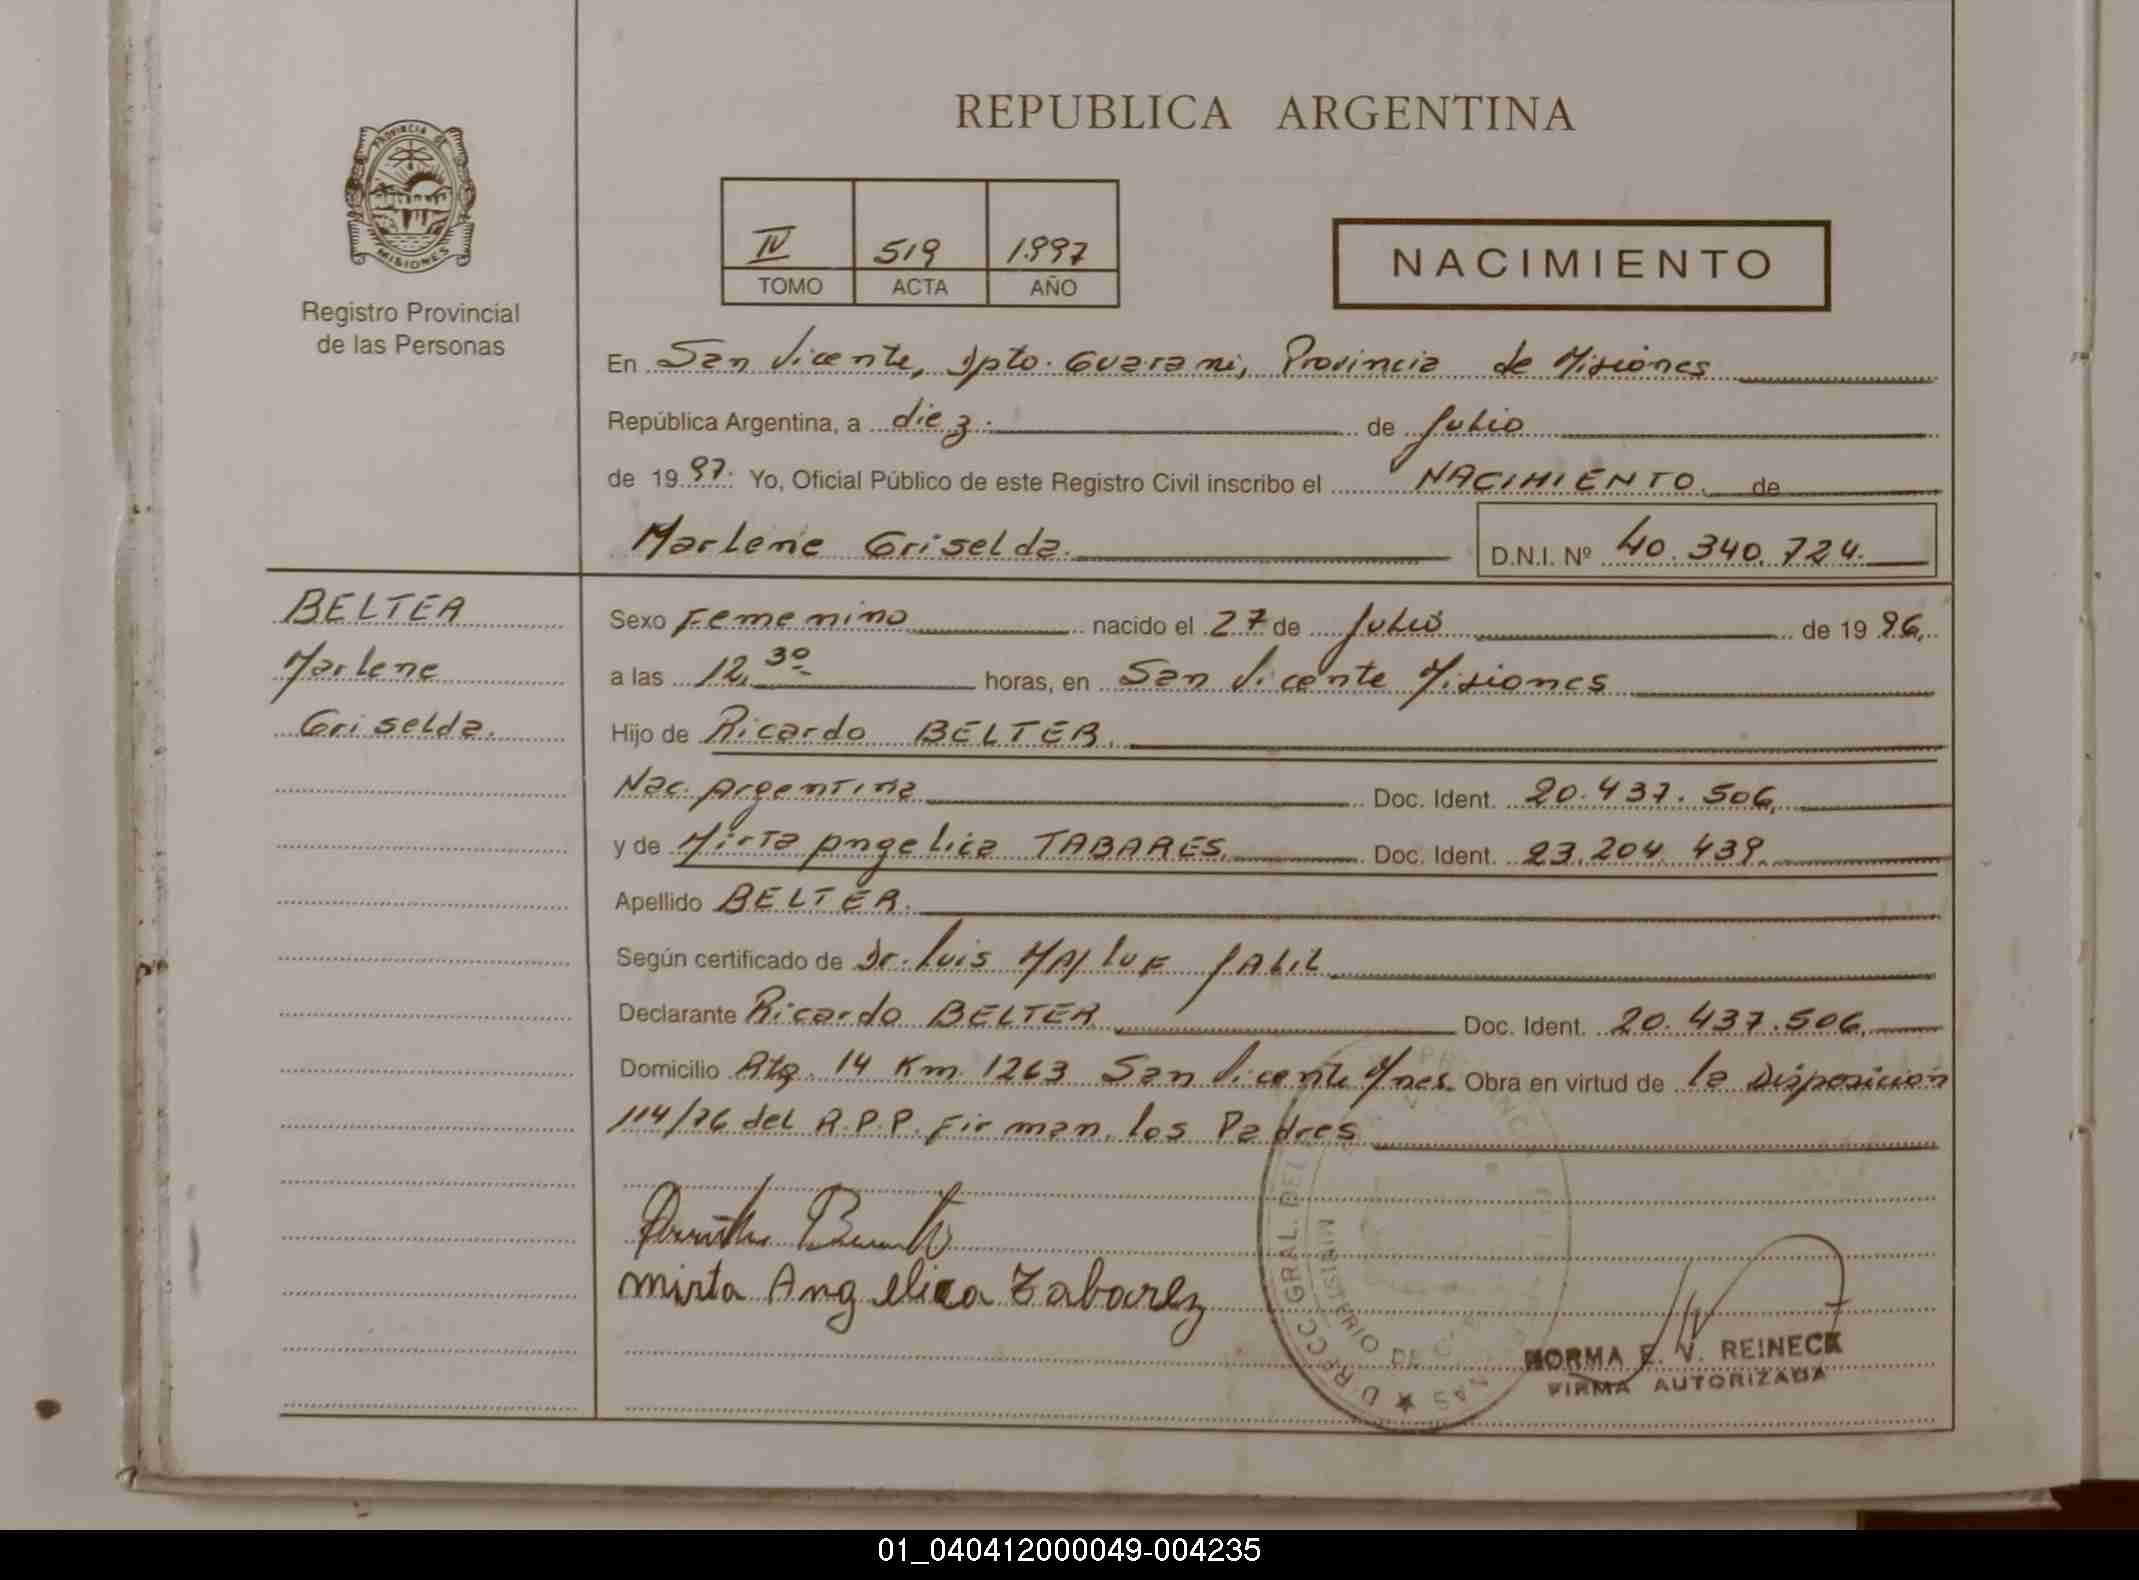 REPUBLICA ARGENTINA
PROVINCIA DE
MISIONES
Registro Provincial
de las Personas
IV 519 1.997
TOMO ACTA AÑO
NACIMIENTO
En San Vicente, Dpto. Guarani, Provincia de Misiones
República Argentina, a diez. de Julio
de 19 97. Yo, Oficial Público de este Registro Civil inscribo el NACIMIENTO. de
Marlene Griselda. D.N.I. Nº 40.340.724.
BELTER
Marlene
Griselda.
Sexo Femenino nacido el 27 de Julio de 19 96,
a las 12,30 horas, en San Vicente Misiones
Hijo de Ricardo BELTER.
Nac. Argentina Doc. Ident. 20.437.506,
y de Mirta Angelica TABARES, Doc. Ident. 23.204.439.
Apellido BELTER.
Según certificado de Dr. Luis MALUF JALIL
Declarante Ricardo BELTER Doc. Ident. 20.437.506,
Domicilio Rta. 14 Km 1263 San Vicente Mnes. Obra en virtud de la Disposición
114/76 del R.P.P. Firman los Padres
Mirta Angelica Tabarez
DIRECC. GRAL. DEL
MINISTERIO DE
NORMA E. V. REINECK
FIRMA AUTORIZADA
01_040412000049-004235